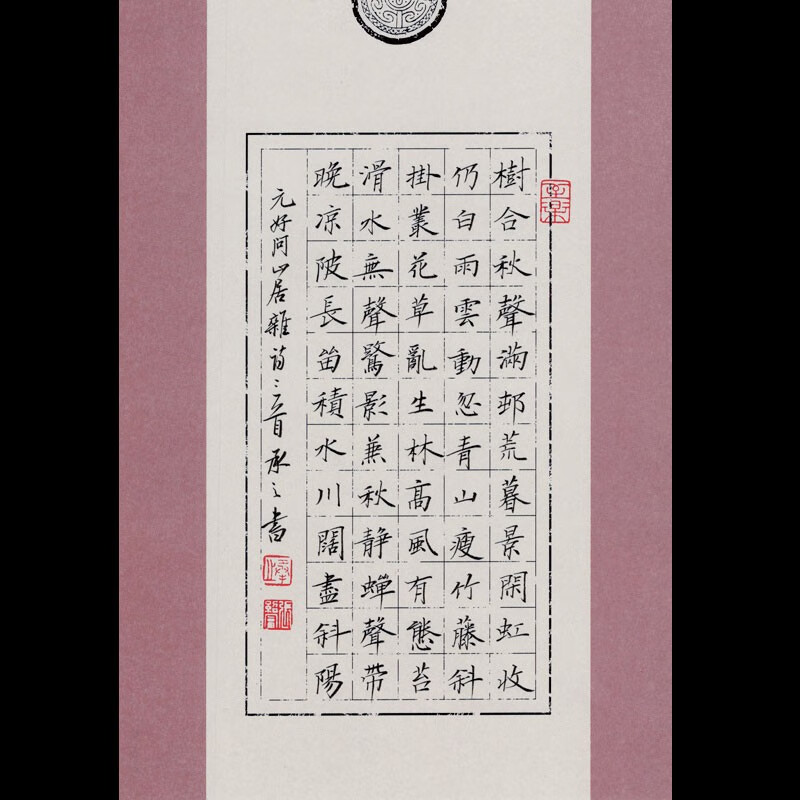 樹合秋聲滿邨荒暮景閑虹收
仍白雨雲動忽青山瘦竹藤斜
掛叢花草亂生林髙風有態苔
滑水無聲鷺影蒹秋静蟬聲帶
晚凉陂長留積水川闊盡斜陽
元好问山居雜诗三首承之書